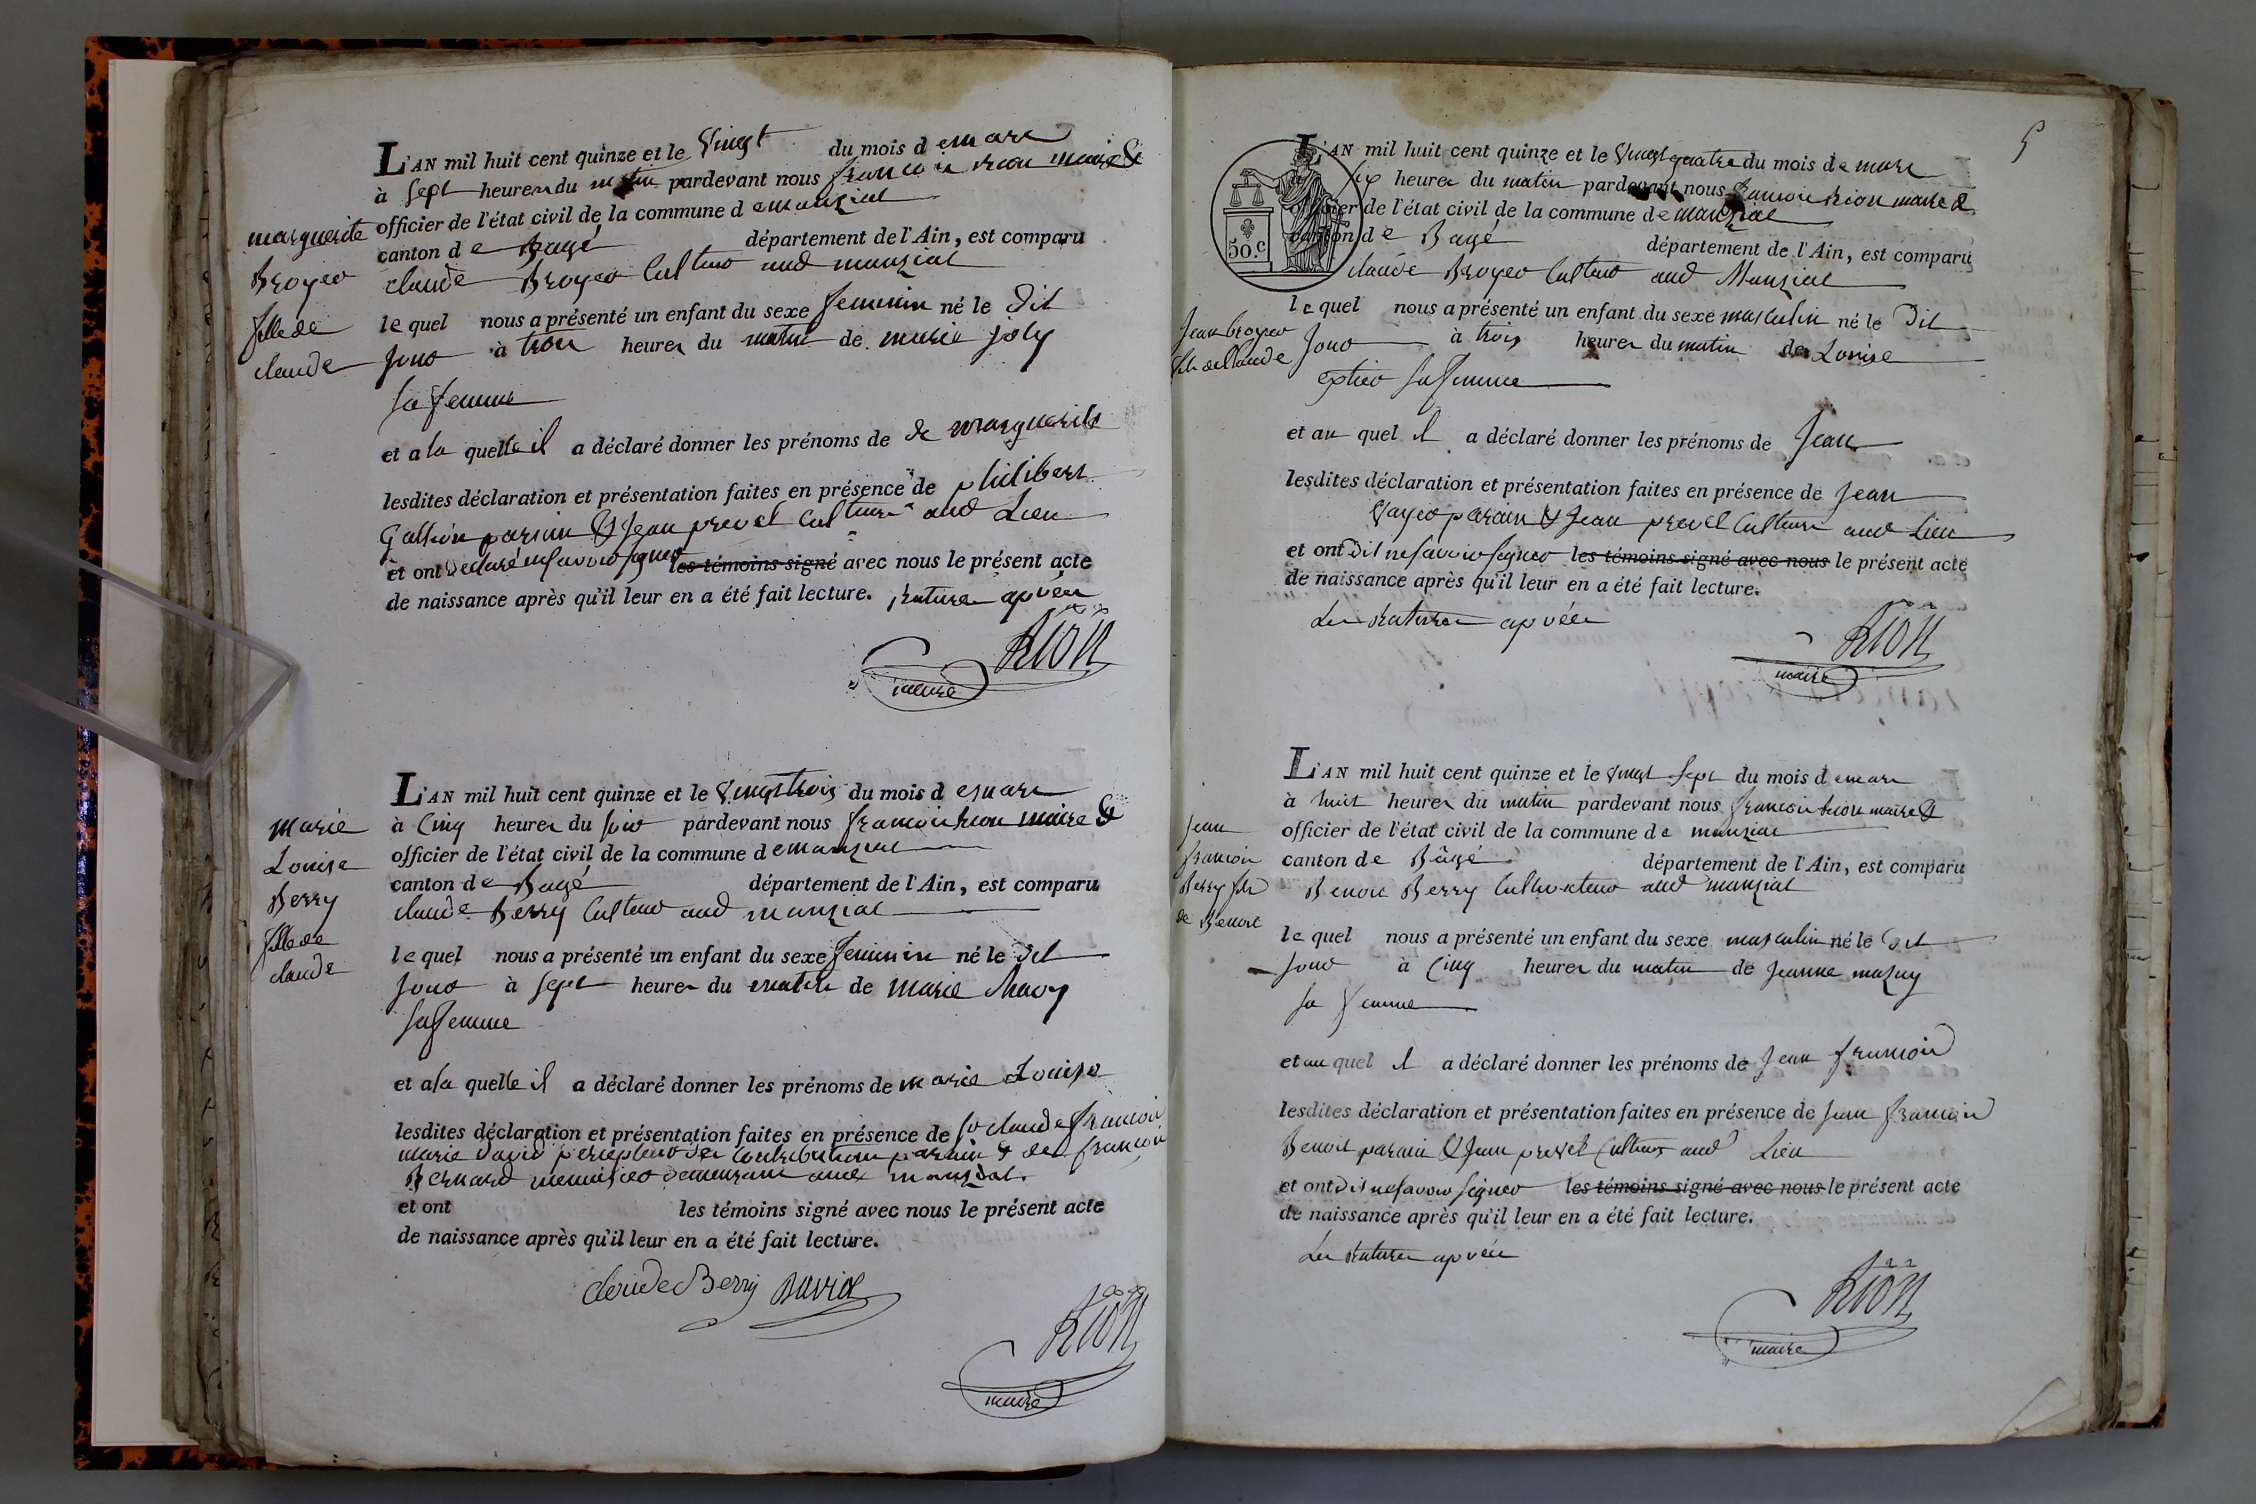 L'AN mil huit cent quinze et le vingt du mois de mars
à sept heures du matin pardevant nous francois rion maire &
officier de l'état civil de la commune de manziat
canton de Bagé département de l'Ain, est comparu
claude Broyer cultivr aud manziat
lequel nous a présenté un enfant du sexe feminin né le dit
jour à trois heures du matin de marie joly
sa femme
et a la quelle il a déclaré donner les prénoms de de marguerite
lesdites déclaration et présentation faites en présence de philibert
parain & Jean prevel cultivrs aud Lieu
et ont déclaré ne savoir signer les témoins signé avec nous le présent acte
de naissance après qu'il leur en a été fait lecture. ratures apvées
Rion
maire
marguerite
Broyer
fille de
claude
L'AN mil huit cent quinze et le vingt trois du mois de mars
à cinq heures du soir pardevant nous francois rion maire &
officier de l'état civil de la commune de manziat
canton de Bagé département de l'Ain, est comparu
claude Berry cultivr aud manziat
lequel nous a présenté un enfant du sexe feminin né le dit
jour à sept heures du matin de marie
sa femme
et a la quelle il a déclaré donner les prénoms de marie Louise
lesdites déclaration et présentation faites en présence de sr claude francois
marie David percepteur des contributions parain & de francois
Bernard menuisier demeurant aud manziat.
et ont les témoins signé avec nous le présent acte
de naissance après qu'il leur en a été fait lecture.
claude Berry David
Rion
maire
marie
Louise
Berry
fille de
claude
5
50.c
L'AN mil huit cent quinze et le vingt quatre du mois de mars
à six heures du matin pardevant nous francois rion maire &
officier de l'état civil de la commune de manziat
canton de Bagé département de l'Ain, est comparu
claude Broyer cultivr aud Manziat
lequel nous a présenté un enfant du sexe masculin né le dit
jour à trois heures du matin de Louise
sa femme
et au quel il a déclaré donner les prénoms de Jean
lesdites déclaration et présentation faites en présence de Jean
parain & Jean prevel cultivrs aud Lieu
et ont dit ne savoir signer les témoins signé avec nous le présent acte
de naissance après qu'il leur en a été fait lecture.
Les ratures apvées
Rion
maire
Jean broyer
fils de claude
L'AN mil huit cent quinze et le vingt sept du mois de mars
à huit heures du matin pardevant nous francois rion maire &
officier de l'état civil de la commune de manziat
canton de Bâgé département de l'Ain, est comparu
Benoit Berry cultivateur aud manziat
lequel nous a présenté un enfant du sexe masculin né le dit
jour à cinq heures du matin de jeanne mazuy
sa femme
et au quel il a déclaré donner les prénoms de Jean francois
lesdites déclaration et présentation faites en présence de Jean francois
Benoit parain & Jean prevel cultivrs aud Lieu
et ont dit ne savoir signer les témoins signé avec nous le présent acte
de naissance après qu'il leur en a été fait lecture.
Les ratures apvées
Rion
maire
Jean
francois
Berry fils
de Benoit